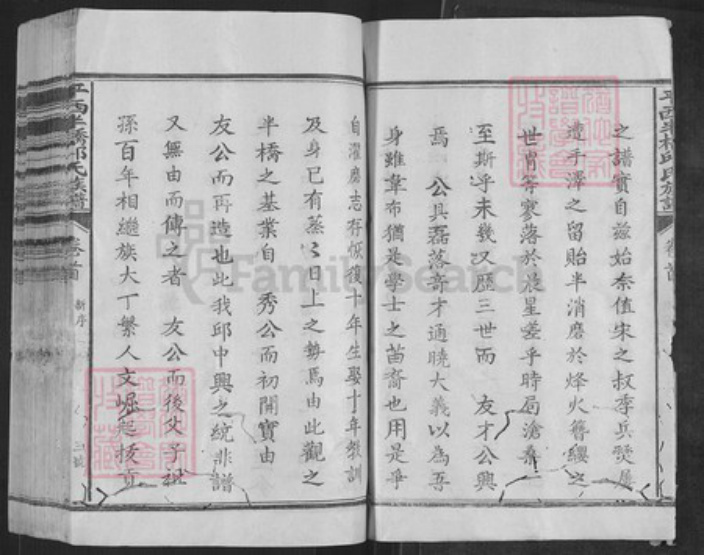 之譜實自茲始奈值宋之叔季兵燹屢
遭手澤之留貽半消磨於烽火簪纓之
世胄容寥落於晨星嗟乎時局滄桑一
至斯乎未幾又歷三世而 友才公興
焉 公具磊落奇才通曉大義以為吾
身雖韋布猶是學士之苗裔也用是爭
自濯磨志存恢復十年生娶十年教訓
及身已有蒸〻日上之勢焉由此觀之
半橋之基業自 秀公而初開實由
友公而再造也此我邱中興之統非譜
又無由而傳之者 友公而後父子祖
孫百年相繼族大丁繁人文崛起拔貢
平西半橋邱氏族譜
卷首
新序
三號
平西半橋邱氏族譜
卷首
FamilySearch